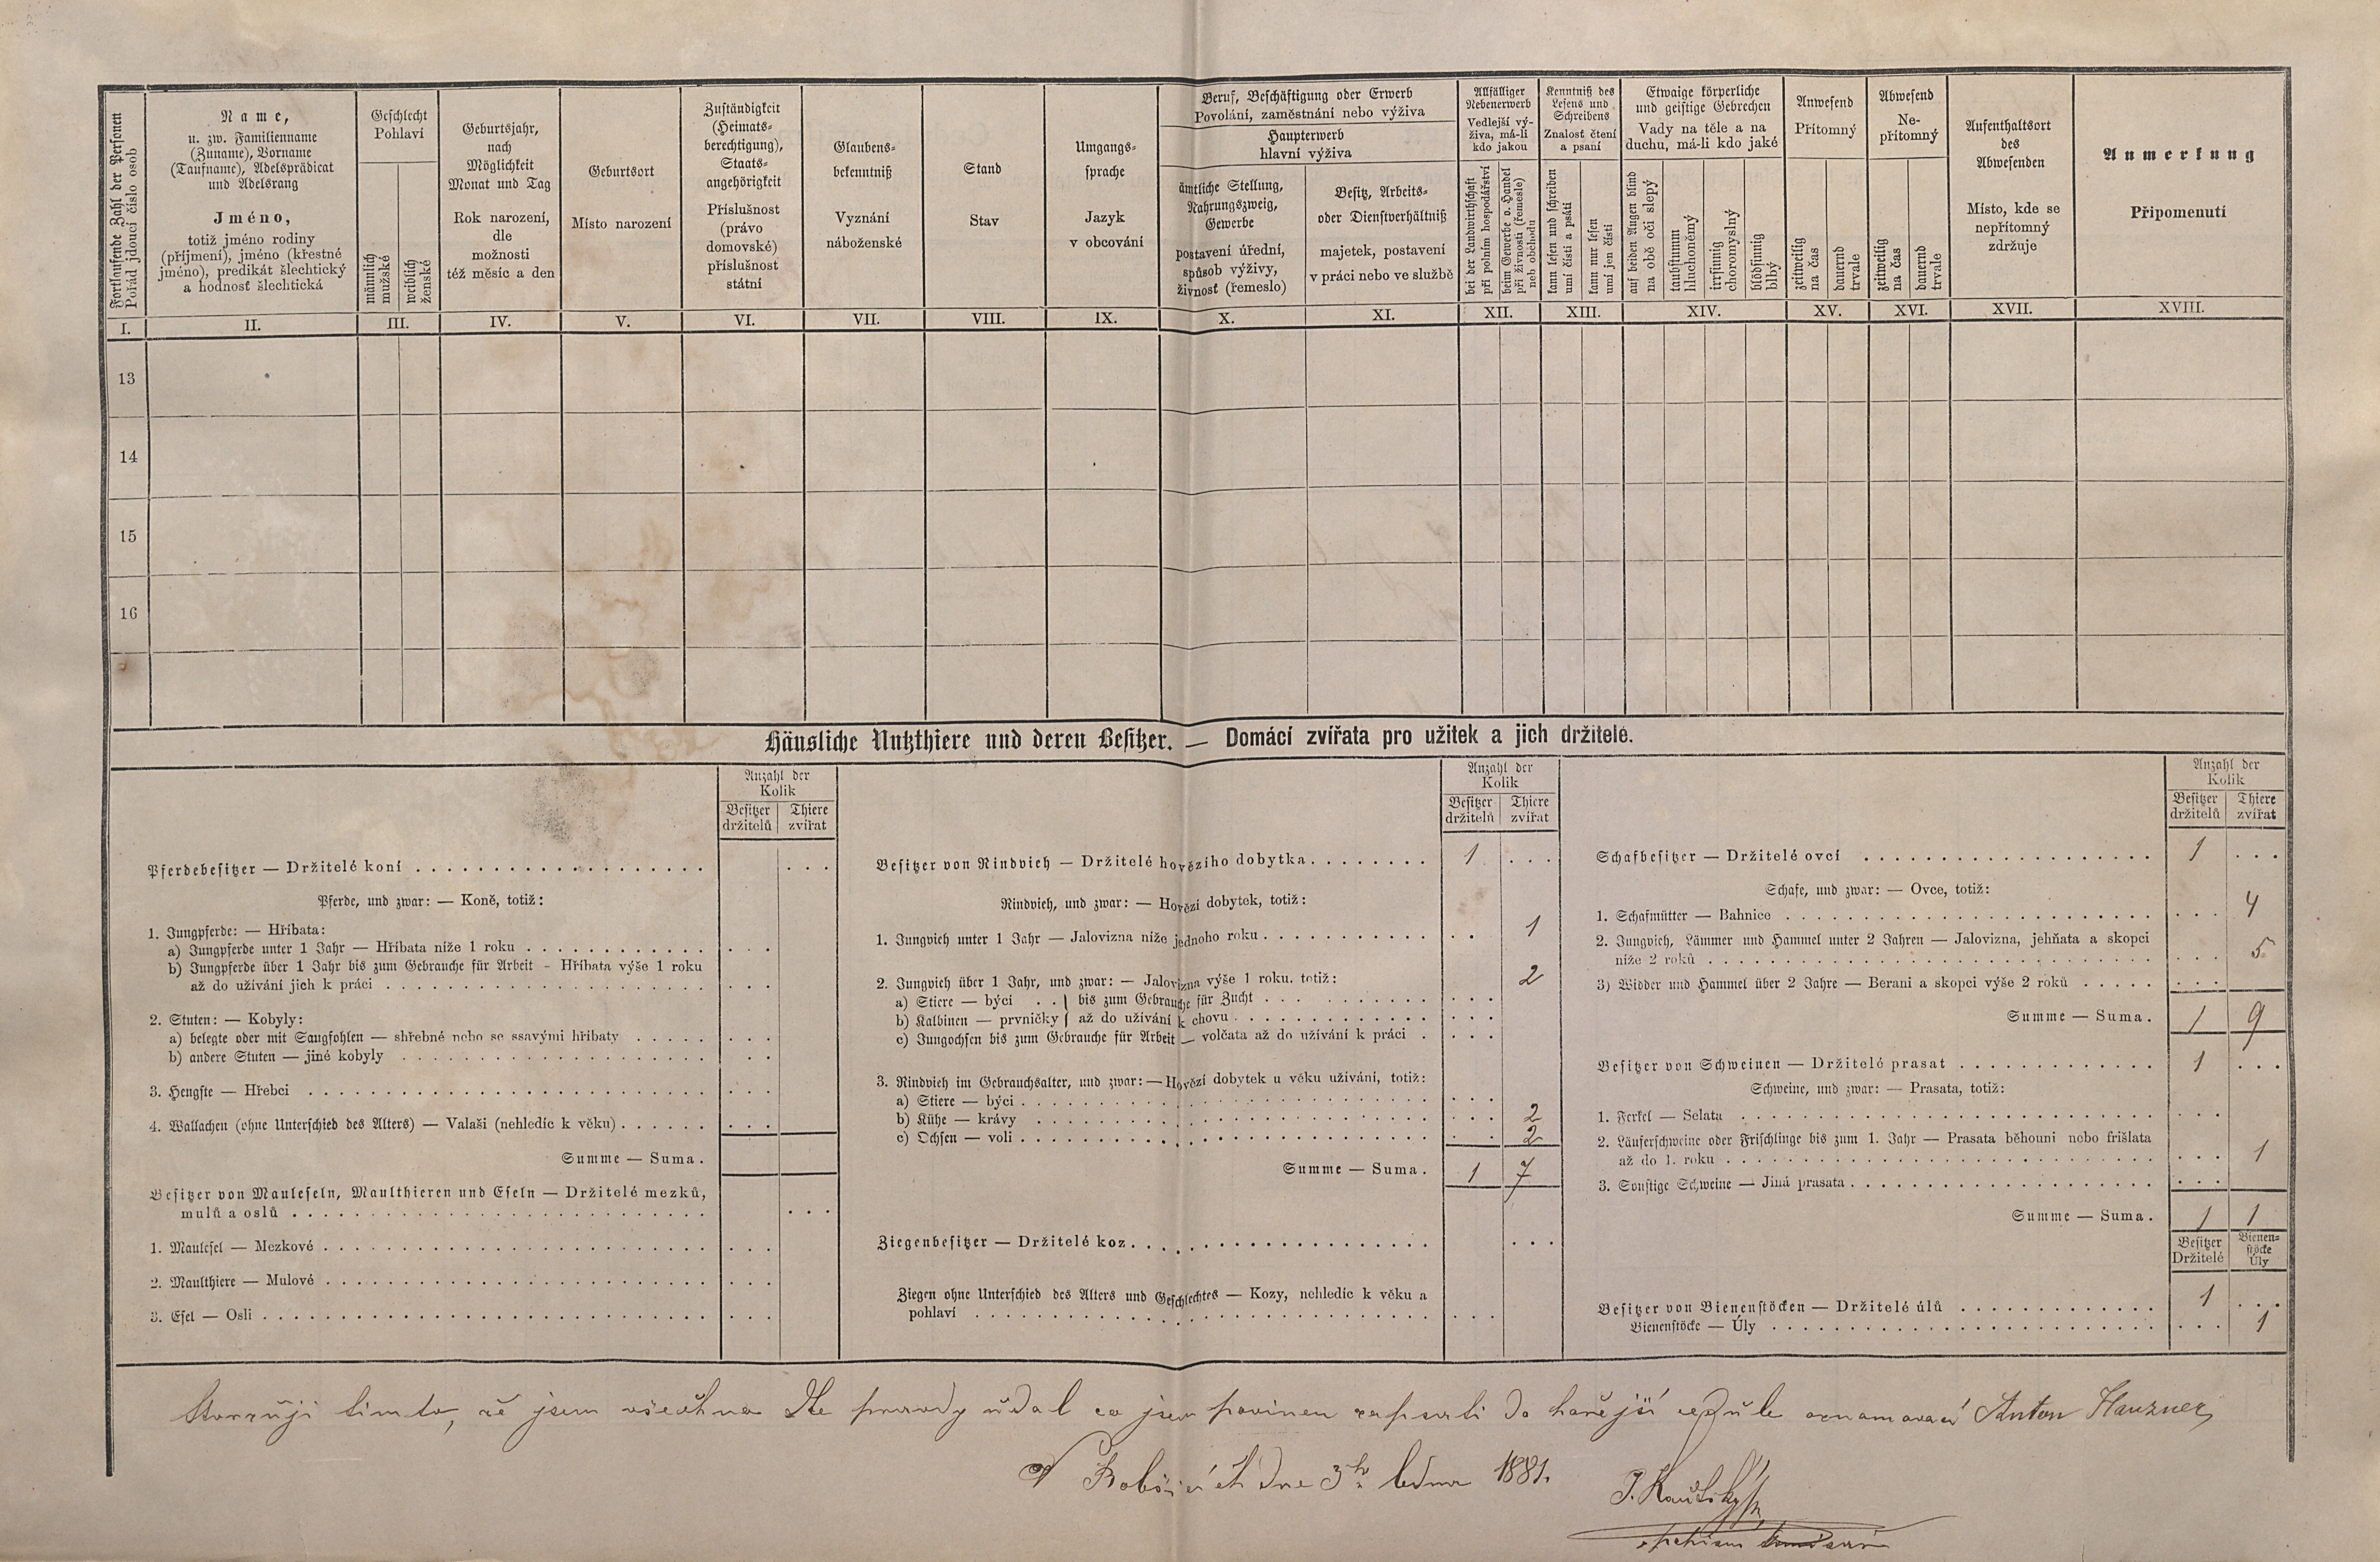 Fortlaufende Zahl der Personen
Pořád jdoucí číslo osob
Name,
u. zw. Familienname
(Zuname), Vorname
(Taufname), Adelsprädicat
und Adelsrang
Jméno,
totiž jméno rodiny
(příjmení), jméno (křestné
jméno), predikát šlechtický
a hodnosť šlechtická
Geschlecht
Pohlaví
männlich
mužské
weiblich
ženské
Geburtsjahr,
nach
Möglichkeit
Monat und Tag
Rok narození,
dle
možnosti
též měsíc a den
Geburtsort
Místo narození
Zuständigkeit
(Heimats-
berechtigung),
Staats-
angehörigkeit
Příslušnost
(právo
domovské)
příslušnost
státní
Glaubens-
bekenntniß
Vyznání
náboženské
Stand
Stav
Umgangs-
sprache
Jazyk
v obcování
Beruf, Beschäftigung oder Erwerb
Povolání, zaměstnání nebo výživa
Haupterwerb
hlavní výživa
ämtliche Stellung,
Nahrungszweig,
Gewerbe
postavení úřední,
spůsob výživy,
živnosť (řemeslo)
Besitz, Arbeits-
oder Dienstverhältniß
majetek, postavení
v práci nebo ve službě
Allfälliger
Nebenerwerb
Vedlejší vý-
živa, má-li
kdo jakou
bei der Landwirthschaft
při polním hospodářství
beim Gewerbe o. Handel
při živnosti (řemesle)
neb obchodu
Kenntniß des
Lesens und
Schreibens
Znalosť čtení
a psaní
kann lesen und schreiben
umí čísti a psáti
kann nur lesen
umí jen čísti
Etwaige körperliche
und geistige Gebrechen
Vady na těle a na
duchu, má-li kdo jaké
auf beiden Augen blind
na obě oči slepý
taubstumm
hluchoněmý
irrsinnig
choromyslný
blödsinnig
blbý
Anwesend
Přítomný
zeitweilig
na čas
dauernd
trvale
Abwesend
Ne-
přítomný
zeitweilig
na čas
dauernd
trvale
Aufenthaltsort
des
Abwesenden
Místo, kde se
nepřítomný
zdržuje
Anmerkung
Připomenutí
I. II. III. IV. V. VI. VII. VIII. IX. X. XI. XII. XIII. XIV. XV. XVI. XVII. XVIII.
13
14
15
16
Häusliche Nutzthiere und deren Besitzer. — Domácí zvířata pro užitek a jich držitelé.
Anzahl der
Kolik
Besitzer Thiere
držitelů zvířat
Pferdebesitzer — Držitelé koní
Pferde, und zwar: — Koně, totiž:
1. Jungpferde: — Hříbata:
a) Jungpferde unter 1 Jahr — Hříbata níže 1 roku
b) Jungpferde über 1 Jahr bis zum Gebrauche für Arbeit - Hříbata výše 1 roku
až do užívání jich k práci
2. Stuten: — Kobyly:
a) belegte oder mit Saugfohlen — shřebné nebo se ssavými hříbaty
b) andere Stuten — jiné kobyly
3. Hengste — Hřebci
4. Wallachen (ohne Unterschied des Alters) — Valaši (nehledíc k věku)
Summe — Suma.
Besitzer von Mauleseln, Maulthieren und Eseln — Držitelé mezků,
mulů a oslů
1. Maulesel — Mezkové
2. Maulthiere — Mulové
3. Esel — Osli
Anzahl der
Kolik
Besitzer Thiere
držitelů zvířat
Besitzer von Rindvieh — Držitelé hovězího dobytka 1
Rindvieh, und zwar: — Hovězí dobytek, totiž:
1. Jungvieh unter 1 Jahr — Jalovizna níže jednoho roku 1
2. Jungvieh über 1 Jahr, und zwar: — Jalovizna výše 1 roku, totiž: 2
a) Stiere — býci . . } bis zum Gebrauche für Zucht
b) Kalbinen — prvničky } až do užívání k chovu
c) Jungochsen bis zum Gebrauche für Arbeit — volčata až do užívání k práci
3. Rindvieh im Gebrauchsalter, und zwar: — Hovězí dobytek u věku užívání, totiž:
a) Stiere — býci
b) Kühe — krávy 2
c) Ochsen — voli 2
Summe — Suma. 1 7
Ziegenbesitzer — Držitelé koz
Ziegen ohne Unterschied des Alters und Geschlechtes — Kozy, nehledíc k věku a
pohlaví
Anzahl der
Kolik
Besitzer Thiere
držitelů zvířat
Schafbesitzer — Držitelé ovcí 1
Schafe, und zwar: — Ovce, totiž:
1. Schafmütter — Bahnice 4
2. Jungvieh, Lämmer und Hammel unter 2 Jahren — Jalovizna, jehňata a skopci
níže 2 roků 5
3) Widder und Hammel über 2 Jahre — Berani a skopci výše 2 roků
Summe — Suma. 1 9
Besitzer von Schweinen — Držitelé prasat 1
Schweine, und zwar: — Prasata, totiž:
1. Ferkel — Selata
2. Läuferschweine oder Frischlinge bis zum 1. Jahr — Prasata běhouni nebo frišlata
až do 1. roku 1
3. Sonstige Schweine — Jiná prasata
Summe — Suma. 1 1
Besitzer Bienen-
stöcke
Držitelé Úly
Besitzer von Bienenstöcken — Držitelé úlů 1
Bienenstöcke — Úly 1
Stvrzuji timto, že jsem všechno dle pravdy udal co jsem povinen zapsati do hořejší cedule oznamovací Anton Hauzner
V dne 3ho ledna 1881.